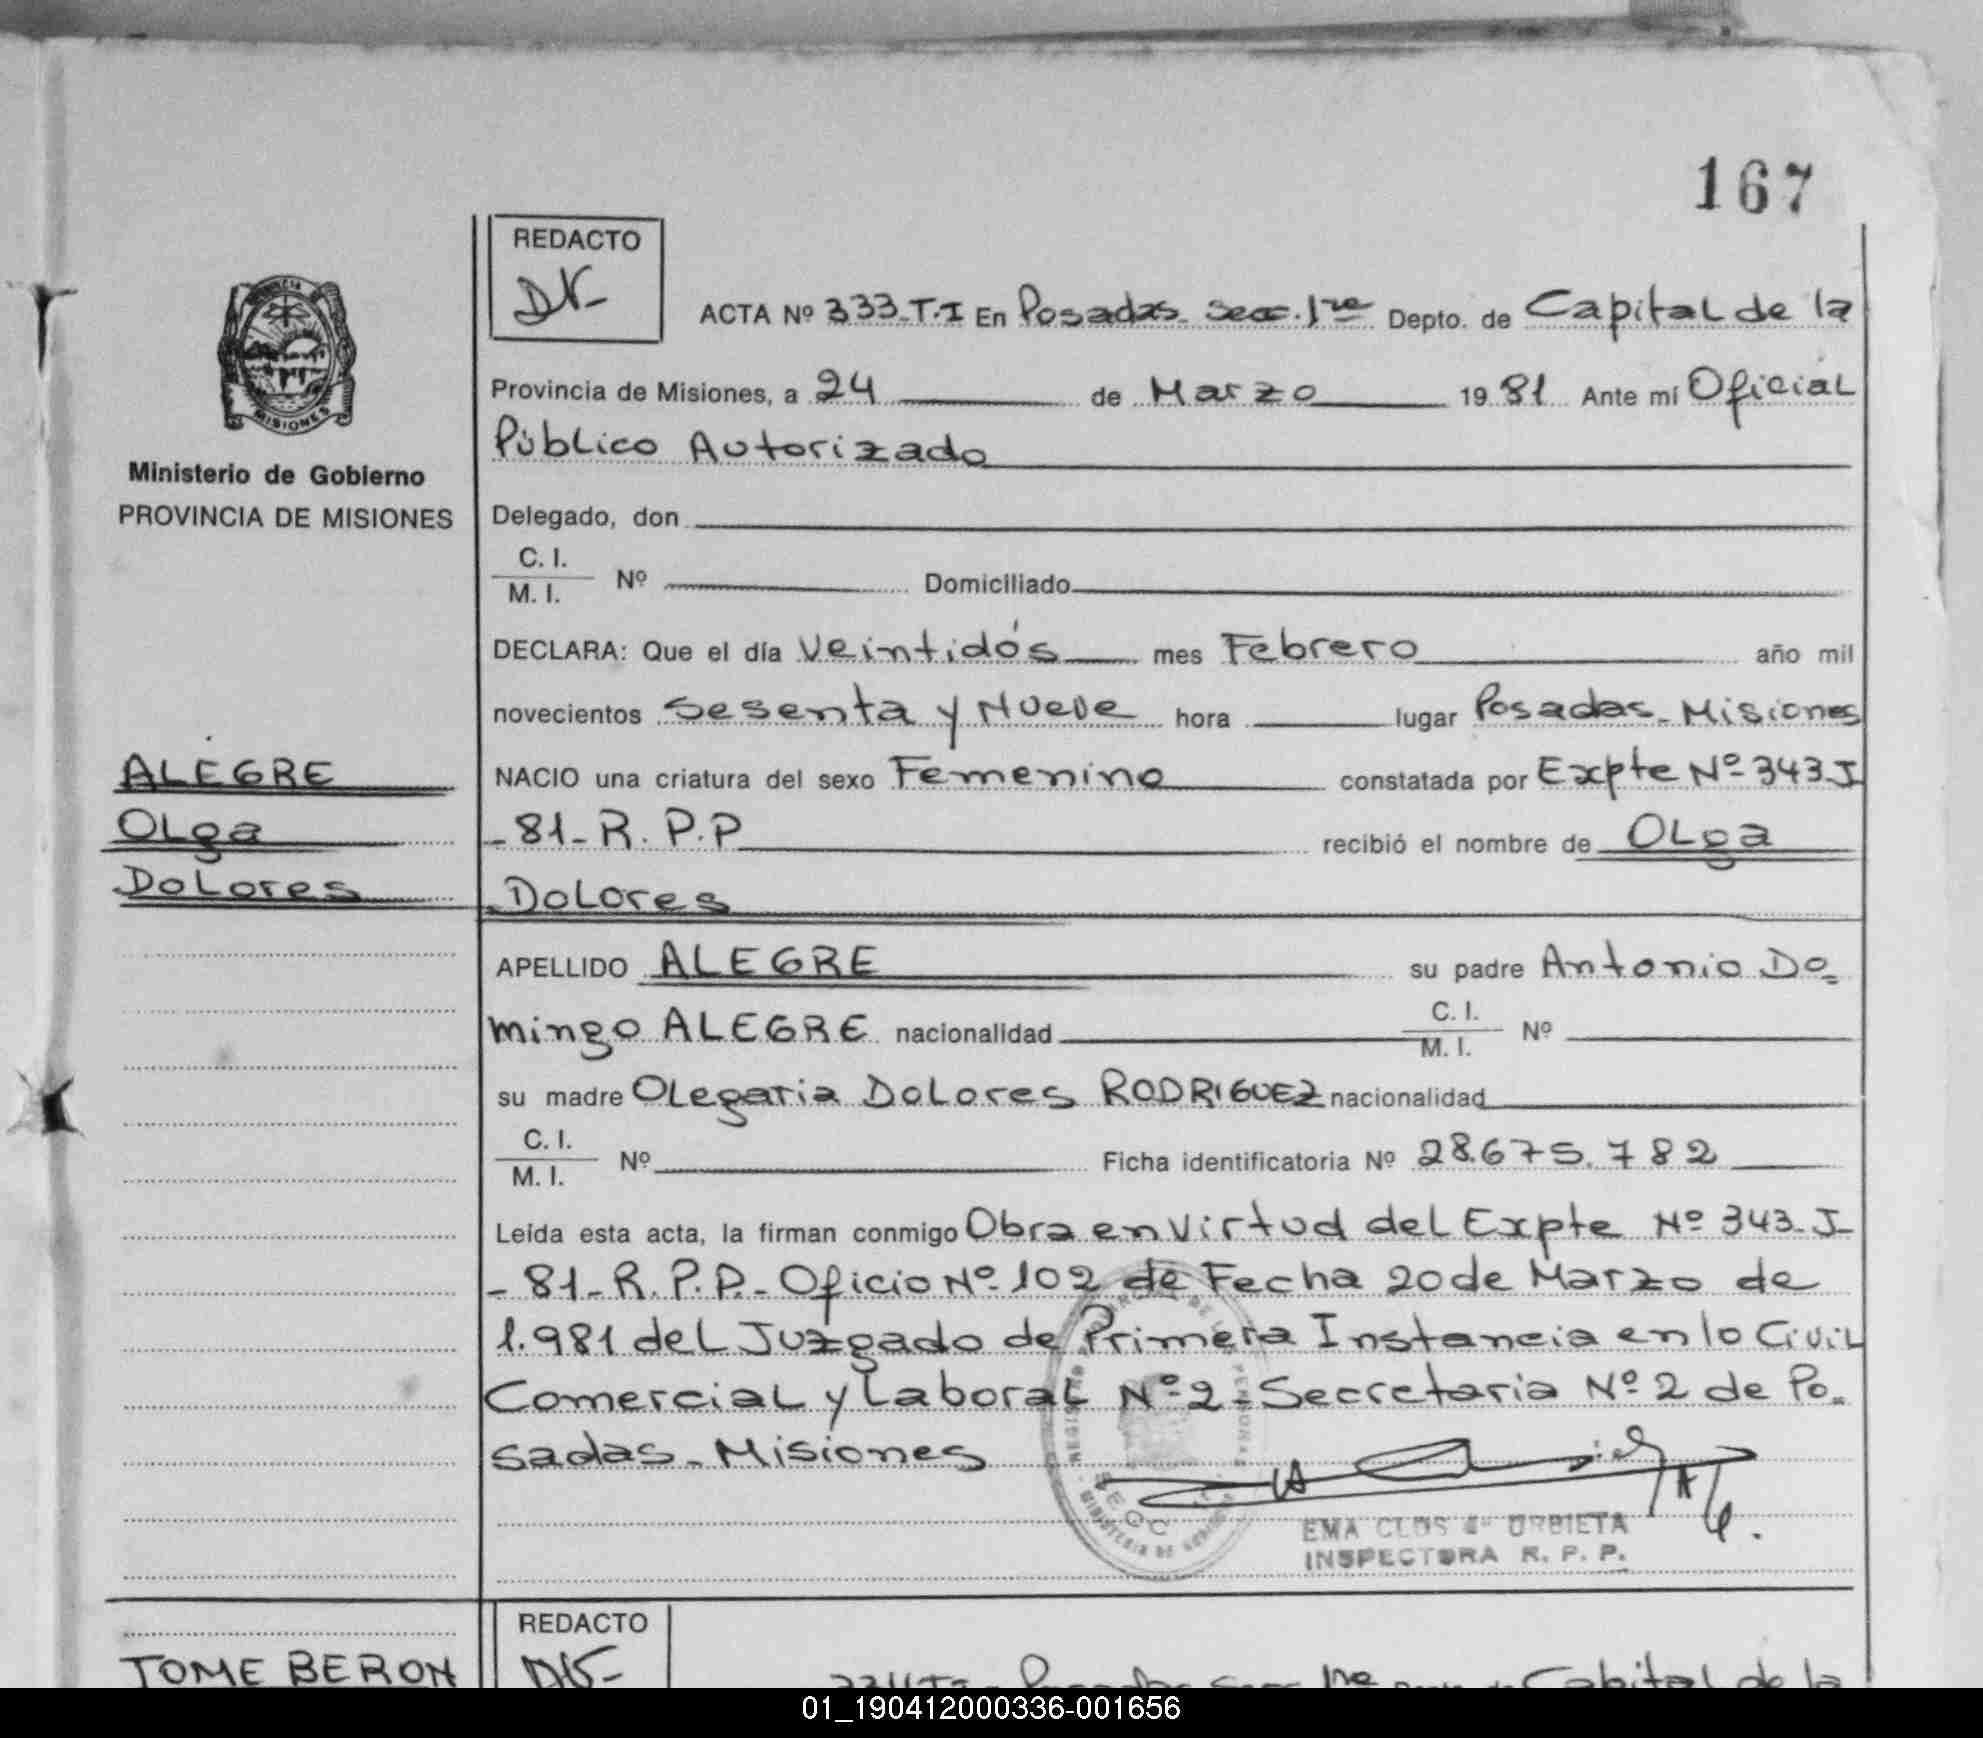 167
REDACTO
ACTA Nº 333-T.I En Posadas. Secc. 1ra Depto. de Capital de la
Provincia de Misiones, a 24 de Marzo 1981 Ante mí Oficial
Público Autorizado
Ministerio de Gobierno
PROVINCIA DE MISIONES
MISIONES
Delegado, don
C. I.
M. I. Nº Domiciliado
DECLARA: Que el día Veintidós mes Febrero año mil
novecientos Sesenta y Nueve hora lugar Posadas - Misiones
ALEGRE
Olga
Dolores
NACIO una criatura del sexo Femenino constatada por Expte Nº 343-J
-81-R.P.P recibió el nombre de Olga
Dolores
APELLIDO ALEGRE su padre Antonio Do-
mingo ALEGRE nacionalidad C. I. M. I. Nº
su madre Olegaria Dolores RODRIGUEZ nacionalidad
C. I.
M. I. Nº Ficha identificatoria Nº 28.675.782
Leída esta acta, la firman conmigo Obra en Virtud del Expte Nº 343-J-
-81-R.P.P.- Oficio Nº 102 de Fecha 20 de Marzo de
1.981 del Juzgado de Primera Instancia en lo Civil
Comercial y Laboral Nº 2 - Secretaria Nº 2 de Po-
sadas - Misiones
INSPECTORA R. P. P.
REDACTO
TOME BERON
Capital de la
01_190412000336-001656